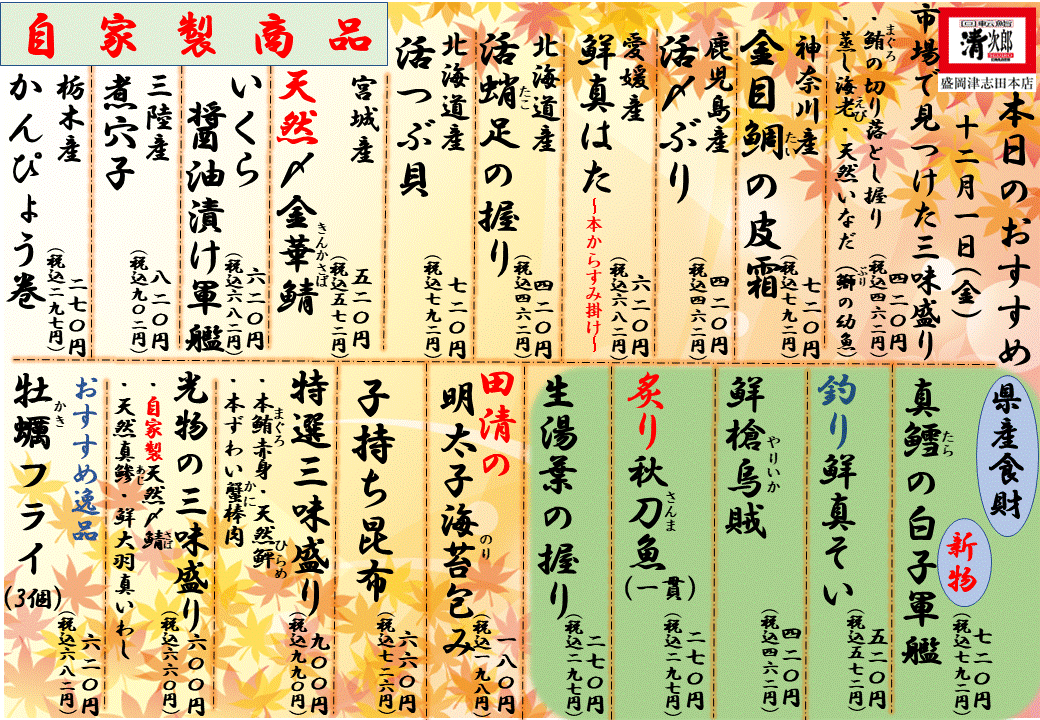 回転鮨
清次郎
盛岡津志田本店
本日のおすすめ
十二月一日(金)
市場で見つけた三味盛り
・鮪の切り落とし握り
まぐろ
・蒸し海老・天然いなだ(鰤の幼魚)
えび
ぶり
四二〇円
(税込四六二円)
神奈川産
金目鯛の皮霜
たい
七二〇円
(税込七九二円)
鹿児島産
活〆ぶり
四二〇円
(税込四六二円)
愛媛産
鮮真はた
~本からすみ掛け~
六二〇円
(税込六八二円)
北海道産
活蛸足の握り
たこ
四二〇円
(税込四六二円)
北海道産
活つぶ貝
七二〇円
(税込七九二円)
自家製商品
宮城産
天然〆金華鯖
きんかさば
五二〇円
(税込五七二円)
いくら
醤油漬け軍艦
六二〇円
(税込六八二円)
三陸産
煮穴子
八二〇円
(税込九〇二円)
栃木産
かんぴょう巻
二七〇円
(税込二九七円)
県産食財
新物
真鱈の白子軍艦
たら
七二〇円
(税込七九二円)
釣り鮮真そい
五二〇円
(税込五七二円)
鮮槍烏賊
やりいか
四二〇円
(税込四六二円)
炙り秋刀魚(一貫)
さんま
二七〇円
(税込二九七円)
生湯葉の握り
二七〇円
(税込二九七円)
田清の
明太子海苔包み
のり
一八〇円
(税込一九八円)
子持ち昆布
六六〇円
(税込七二六円)
特選三味盛り
・本鮪赤身・天然鮃
まぐろ
ひらめ
・本ずわい蟹棒肉
かに
九〇〇円
(税込九九〇円)
光物の三味盛り
・自家製天然〆鯖
さば
・天然真鯵・鮮大羽真いわし
あじ
六〇〇円
(税込六六〇円)
おすすめ逸品
牡蠣フライ(3個)
かき
六二〇円
(税込六八二円)